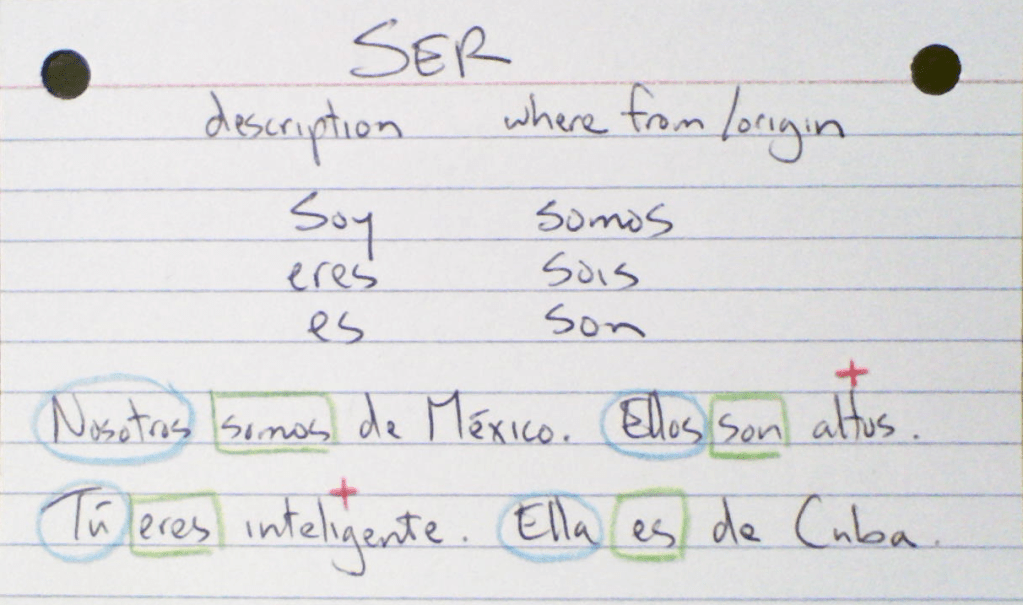 SER
description where from/origin
Soy somos
eres sois
es son
+
Nosotros somos de México. Ellos son altos.
+
Tú eres inteligente. Ella es de Cuba.